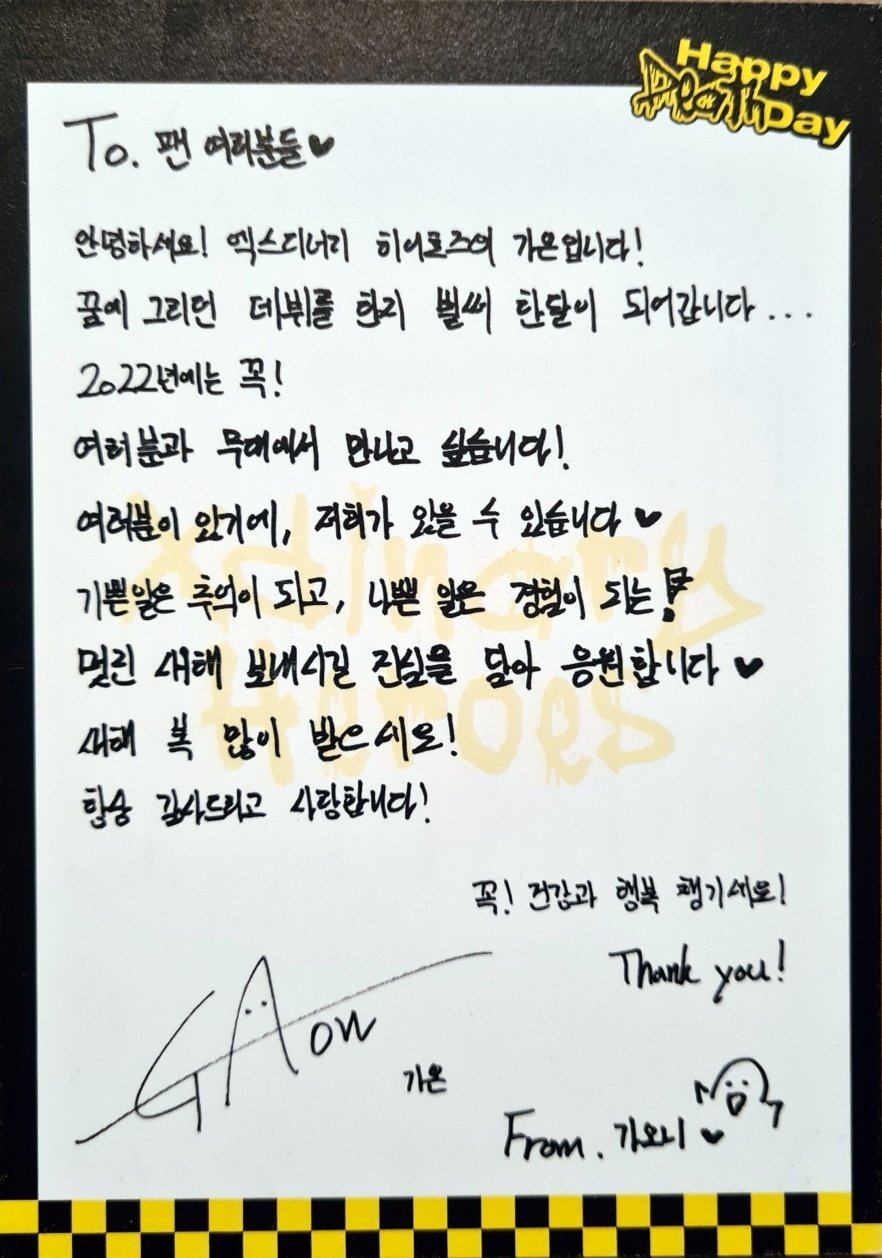 Happy
Death
Day
To. 팬 여러분들♥
안녕하세요! 엑스디너리 히어로즈의 가온입니다!
꿈에 그리던 데뷔를 한지 벌써 한달이 되어갑니다...
2022년에는 꼭!
여러분과 무대에서 만나고 싶습니다!
여러분이 있기에, 저희가 있을 수 있습니다♥
기쁜일은 추억이 되고, 나쁜 일은 경험이 되는!
멋진 새해 보내시길 진심을 담아 응원합니다♥
새해 복 많이 받으세요!
항상 감사드리고 사랑합니다!
꼭! 건강과 행복 챙기세요!
Thank you!
GAon
가온
From. 가오니♥
xdinary
Heroes